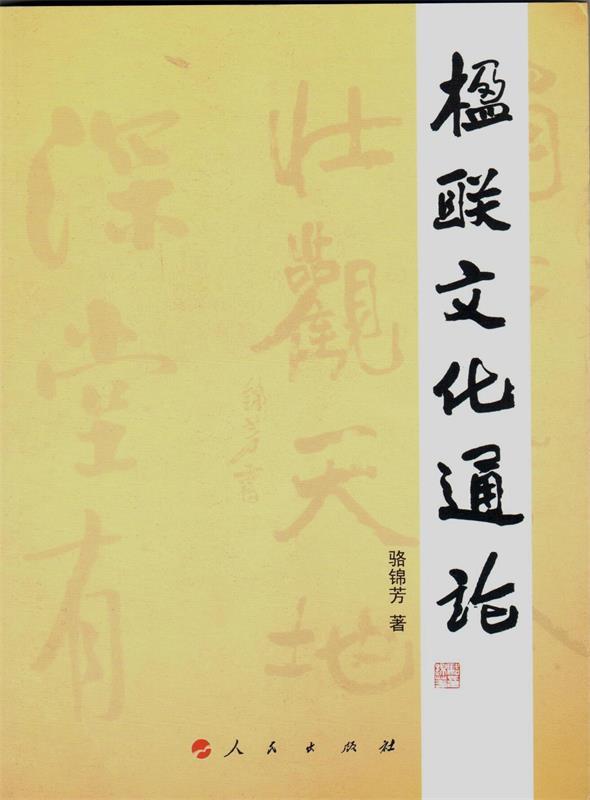 楹联文化通论
骆锦芳 著
人民出版社
壮观天地
深堂有